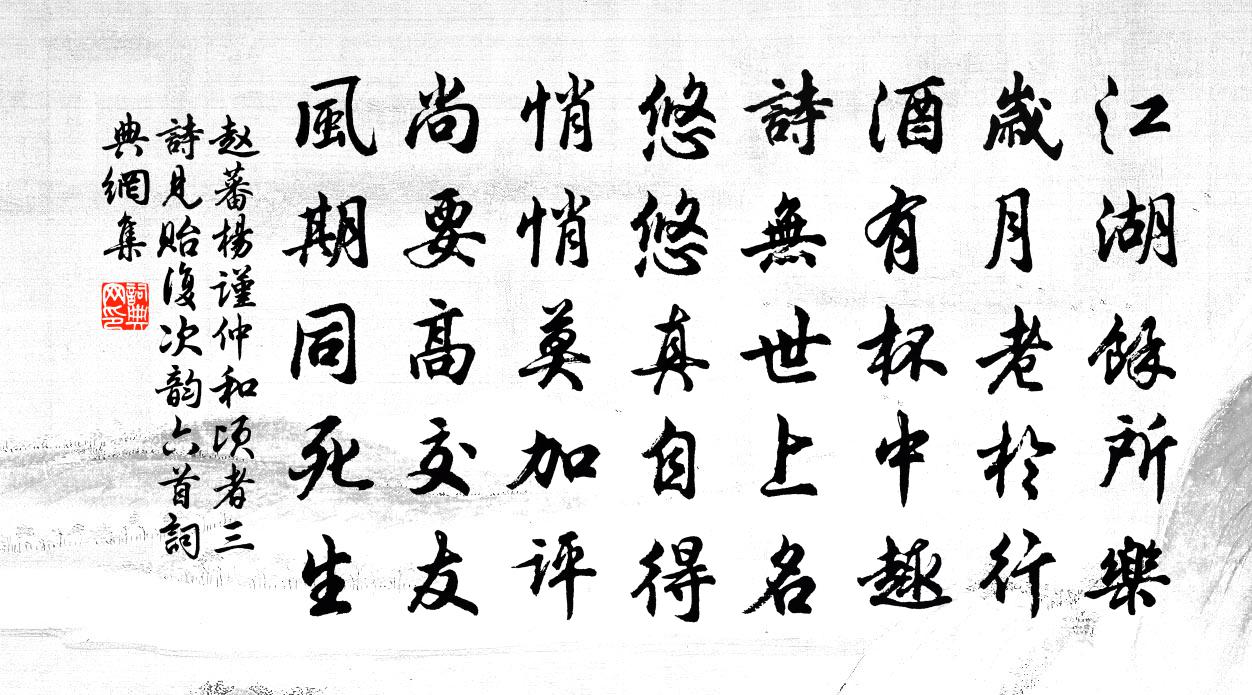 江湖餘所樂
歲月老於行
酒有杯中趣
詩無世上名
悠悠真自得
悄悄莫加評
尚要高交友
風期同死生
赵蕃楊謹仲和頃者三
詩見貽復次韵六首詞
典網集
詞典
网印